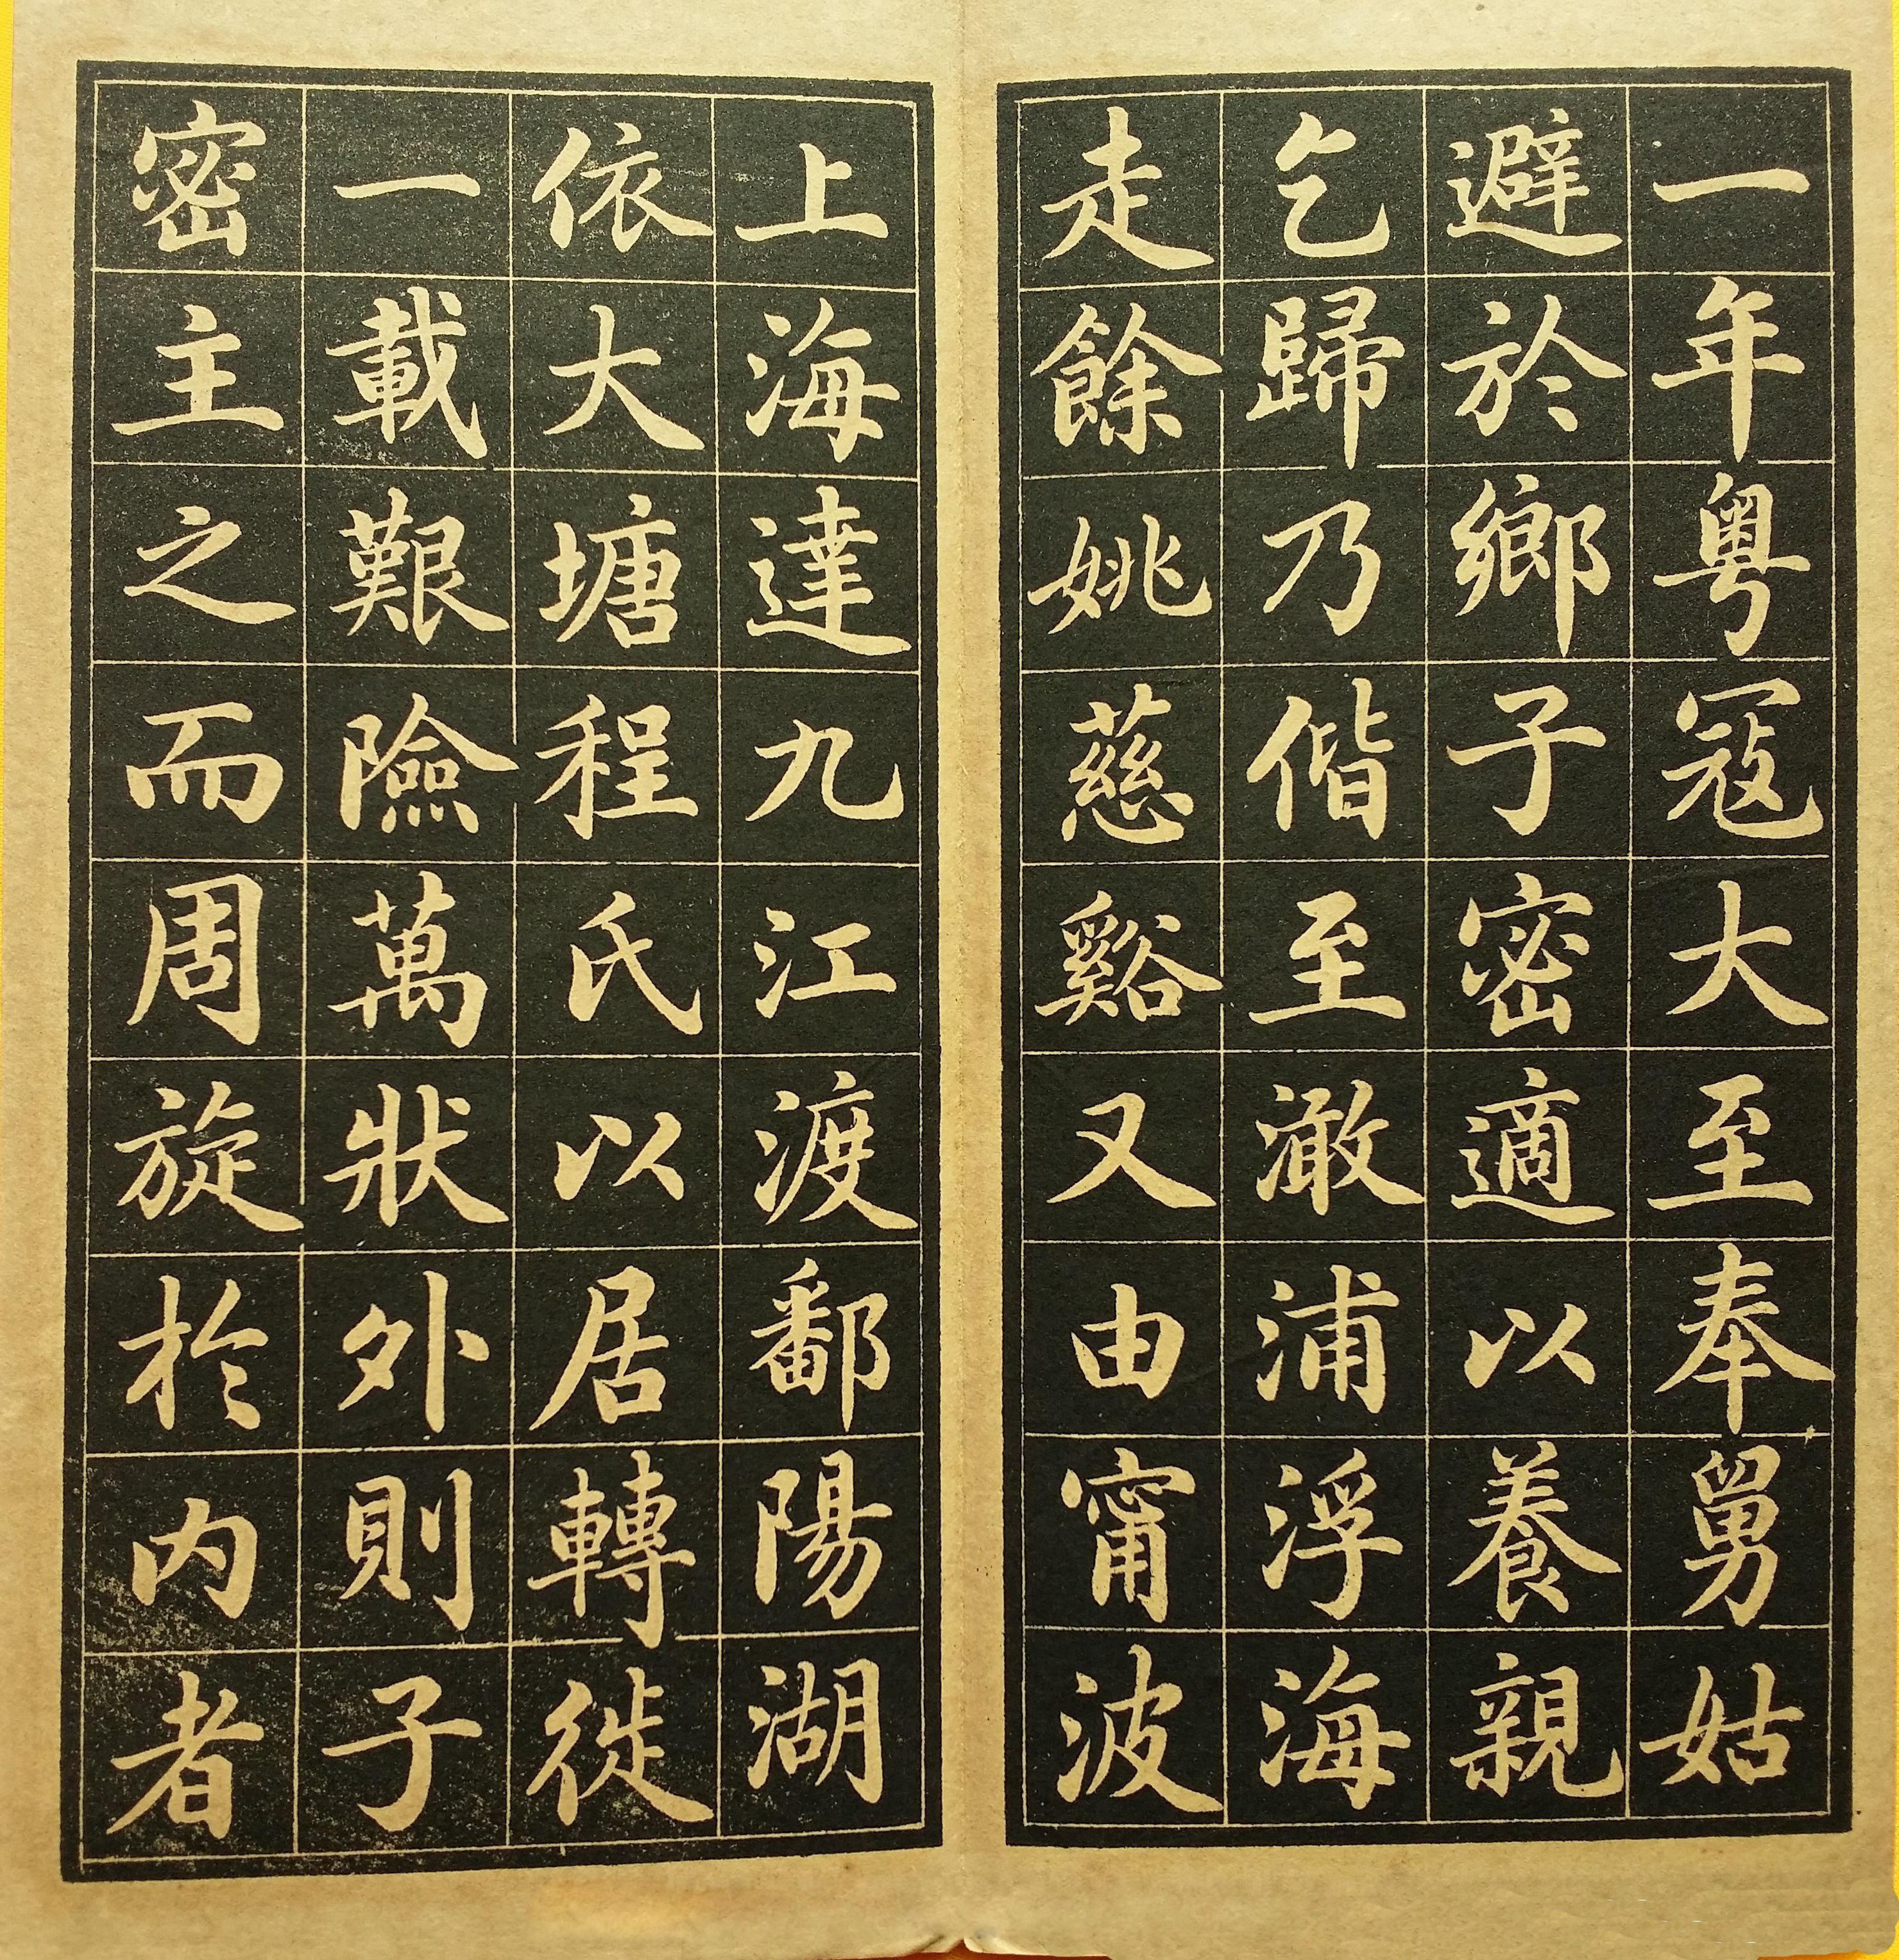 一年粤寇大至奉舅姑
避於鄉子密適以養親
乞歸乃偕至澉浦浮海
走餘姚慈谿又由甯波
上海達九江渡鄱陽湖
依大塘程氏以居轉徙
一載艱險萬狀外則子
密主之而周旋於内者